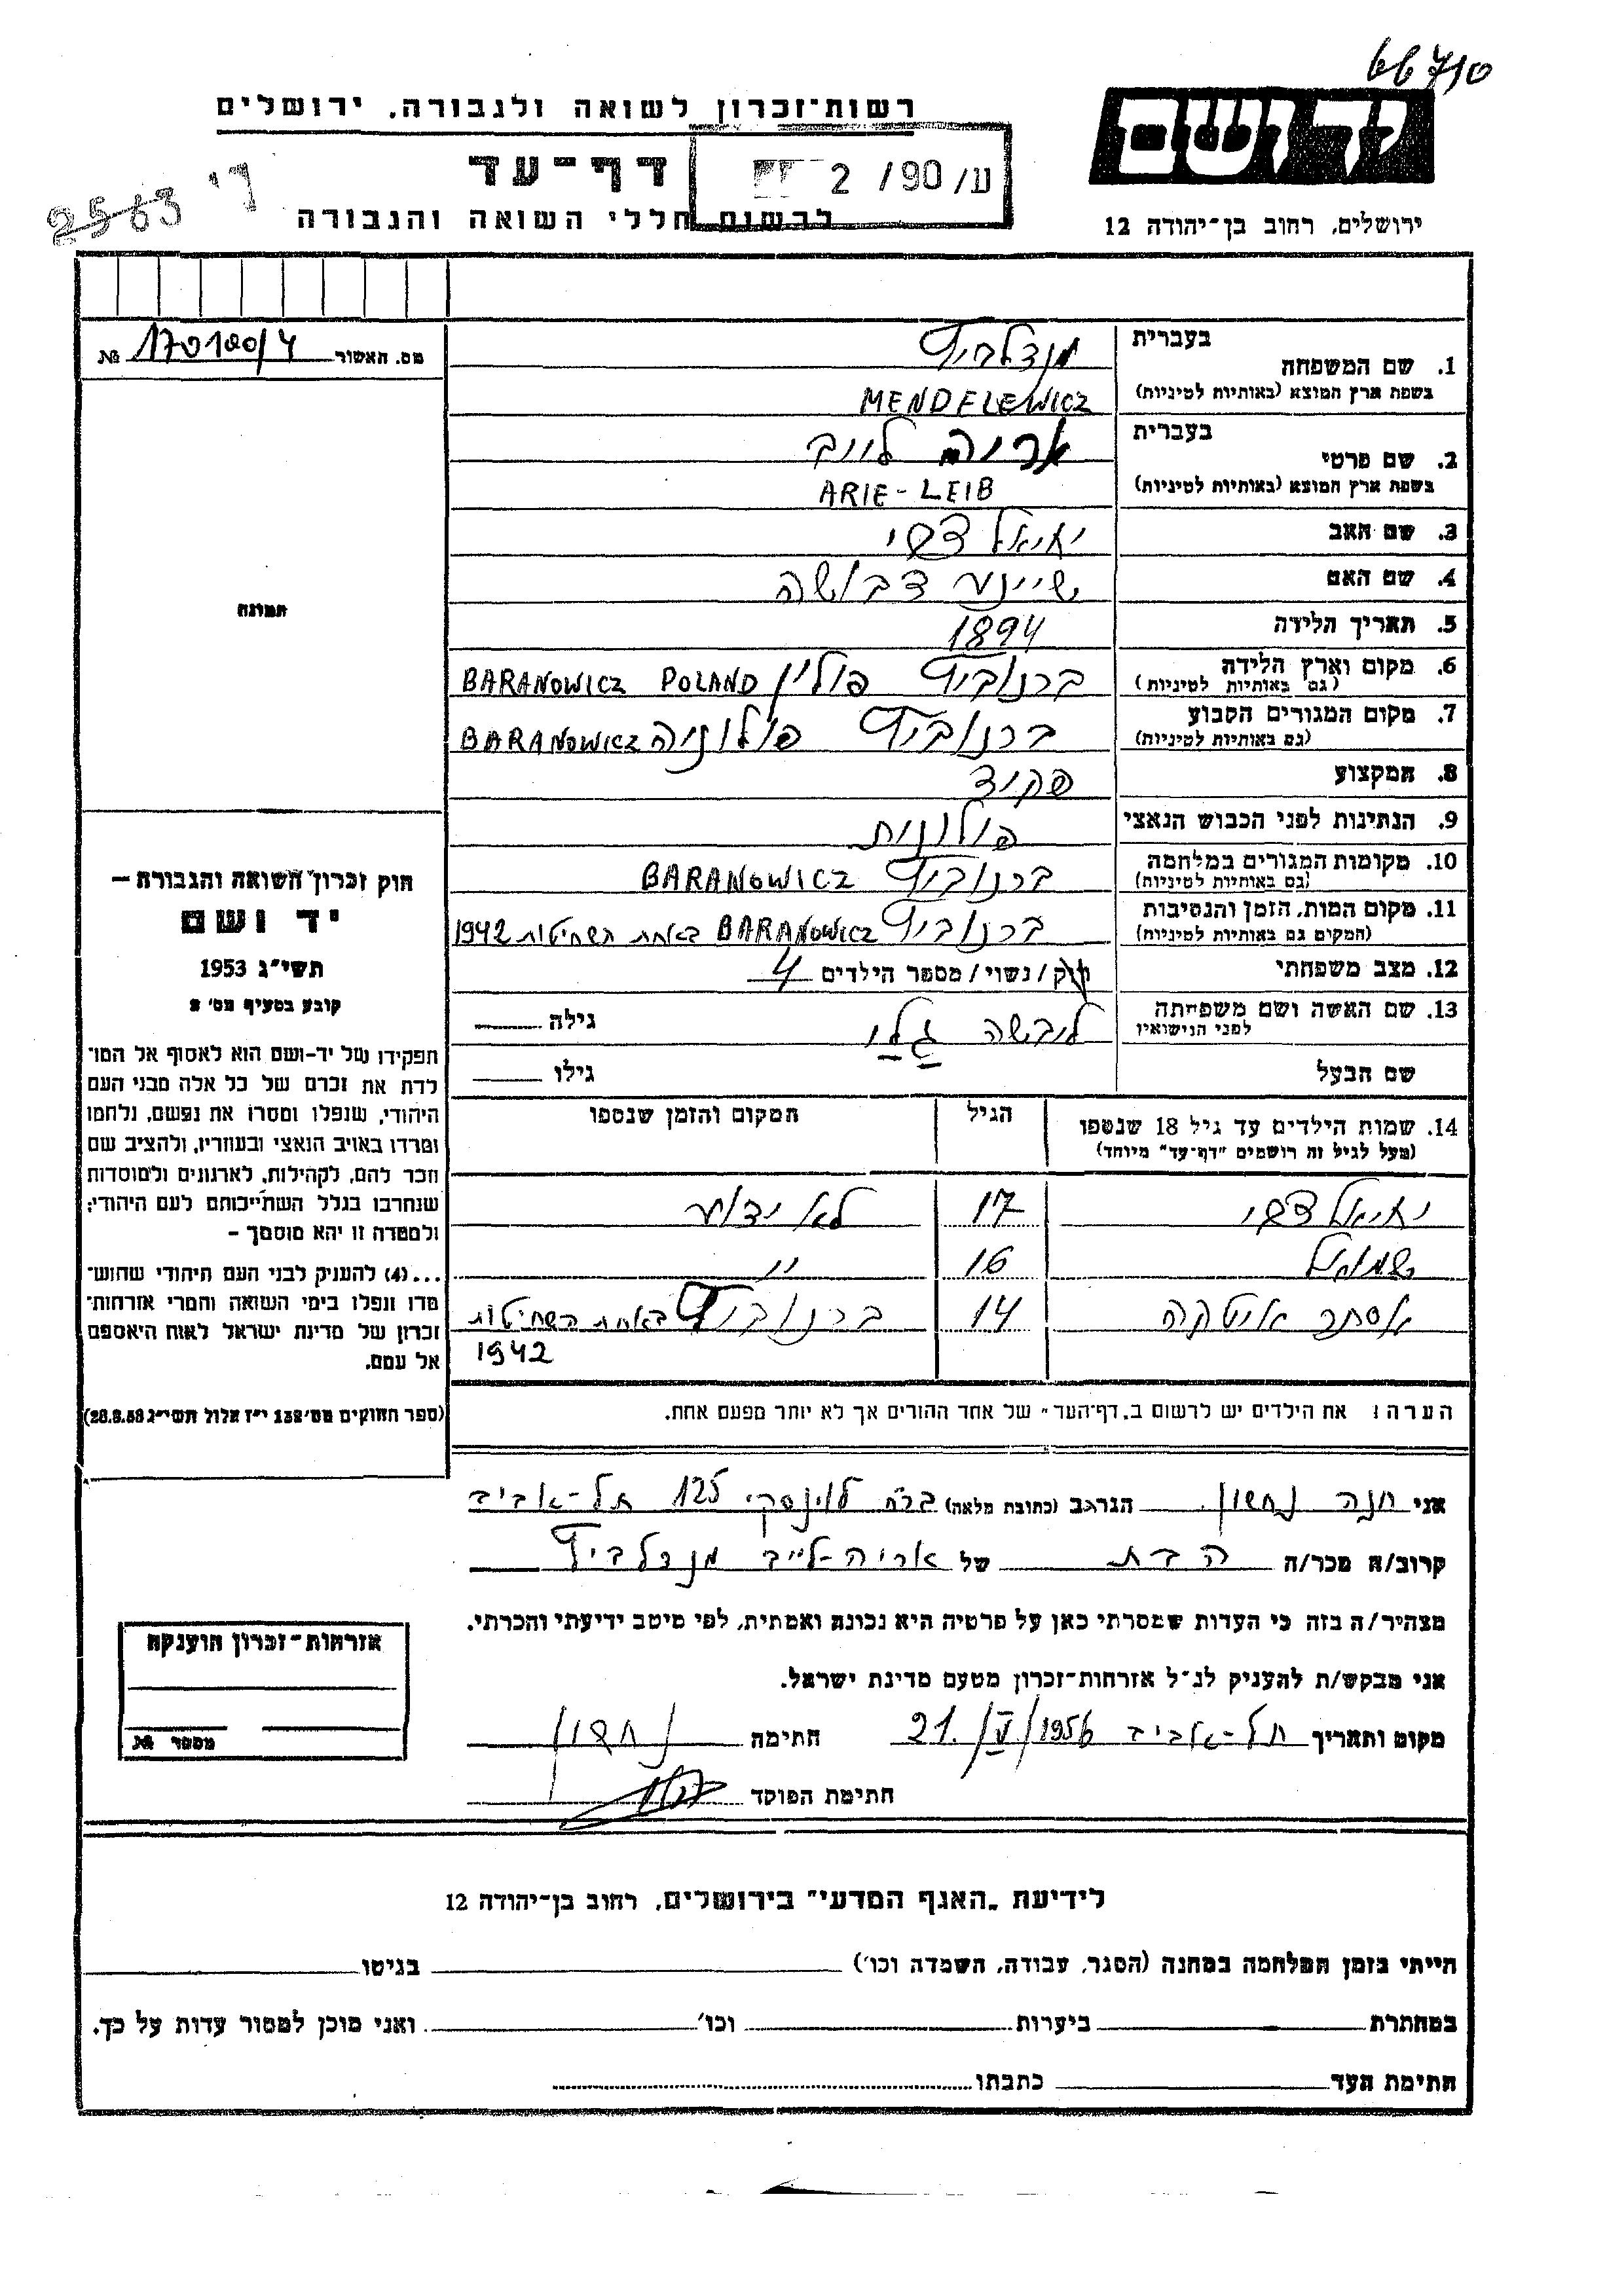 66710
יד ושם
רשות־זכרון לשואה ולגבורה, ירושלים
דף־עד
ע/ 90/ 2
2563
לרשום חללי השואה והגבורה
ירושלים, רחוב בן־יהודה 12
מס. האשור 170180/4 №
תמונה
1. שם המשפחה בעברית מנדלביץ
בשפת ארץ המוצא (באותיות לטיניות) MENDELEWICZ
2. שם פרטי בעברית אריה לייב
בשפת ארץ המוצא (באותיות לטיניות) ARIE-LEIB
3. שם האב יחיאל צבי
4. שם האם שיינע דבושה
5. תאריך הלידה 1894
6. מקום וארץ הלידה (גם באותיות לטיניות) ברנוביץ פולין BARANOWICZ POLAND
7. מקום המגורים הקבוע (גם באותיות לטיניות) ברנוביץ פולניה BARANOWICZ
8. המקצוע פקיד
9. הנתינות לפני הכבוש הנאצי פולונית
10. מקומות המגורים במלחמה (גם באותיות לטיניות) ברנוביץ BARANOWICZ
11. מקום המות, הזמן והנסיבות (המקום גם באותיות לטיניות) ברנוביץ BARANOWICZ באחת השחיטות 1942
12. מצב משפחתי רוק/נשוי/מספר הילדים 4
13. שם האשה ושם משפחתה לפני הנישואין ליבשה גילה
שם הבעל גילו
14. שמות הילדים עד גיל 18 שנספו הגיל המקום והזמן שנספו
(מעל לגיל זה רושמים "דף־עד" מיוחד)
יחיאל צבי 17 לא ידוע
שמואל 16 "
אסתר איטקה 14 ברנוביץ באחת השחיטות
1942
הערה: את הילדים יש לרשום ב„דף־העד" של אחד ההורים אך לא יותר מפעם אחת.
חוק זכרון השואה והגבורה –
יד ושם
תשי"ג 1953
קובע בסעיף מס' 2
תפקידו של יד-ושם הוא לאסוף אל המו־
לדת את זכרם של כל אלה מבני העם
היהודי, שנפלו ומסרו את נפשם, נלחמו
ומרדו באויב הנאצי ובעוזריו, ולהציב שם
וזכר להם, לקהילות, לארגונים ולמוסדות
שנחרבו בגלל השתייכותם לעם היהודי;
ולמטרה זו יהא מוסמך –
...(4) להעניק לבני העם היהודי שהוש־
מדו ונפלו בימי השואה והמרי אזרחות־
זכרון של מדינת ישראל לאות היאספם
אל עמם.
(ספר החוקים מס' 132 י"ז אלול תשי"ג 28.8.53)
אני חנה נחשון הגר/ה ב (כתובת מלאה) ברח לוינסקי 125 תל-אביב
קרוב/ה מכר/ה הבת של אריה-לייב מנדלביץ
מצהיר/ה בזה כי העדות שמסרתי כאן על פרטיה היא נכונה ואמתית, לפי מיטב ידיעתי והכרתי.
אני מבקש/ת להעניק לנ"ל אזרחות־זכרון מטעם מדינת ישראל.
מקום ותאריך תל-אביב 21./V/1956 חתימה נחשון
חתימת הפוקד
אזרחות־זכרון הוענקה
מספר №
לידיעת „האגף המדעי" בירושלים, רחוב בן־יהודה 12
הייתי בזמן המלחמה במחנה (הסגר, עבודה, השמדה וכו') בגיטו
במחתרת ביערות וכו' ואני מוכן למסור עדות על כך.
חתימת העד כתבתו